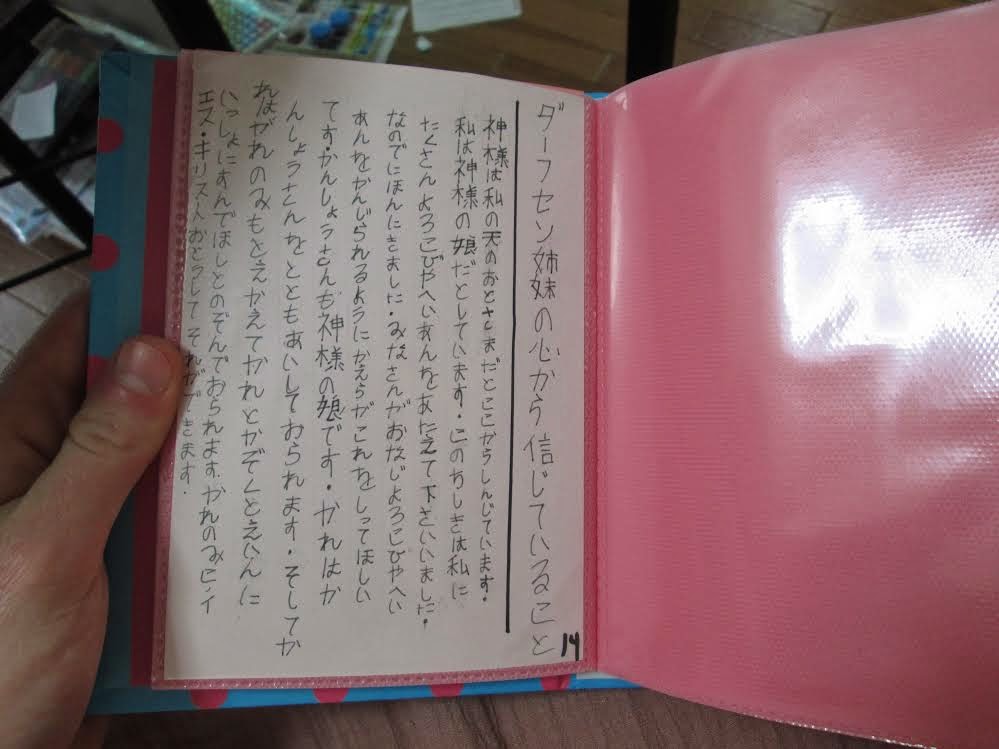 ダーフセソ姉妹の心から信じていること
14
神様は私の天のおとさまだとここからしんじています.
私は神様の娘だとしています.このちしきは私に
たくさんよろこびやへいあんをあたえて下さいいました.
なのでにほんにきました.みなさんがおなじよろこびやへい
あんをかんじられるようにかえらがこれをしってほしい
です.かんしょうさんも神様の娘です.かれはか
んしょうさんをとともあいしておられます.そしてか
れはがれのみもとえかえてかれとかぞくとえいんに
いっしょにすんでほしとのぞんでおられます.かれのみこ,イ
エス・キリストおとうしてそれができます.